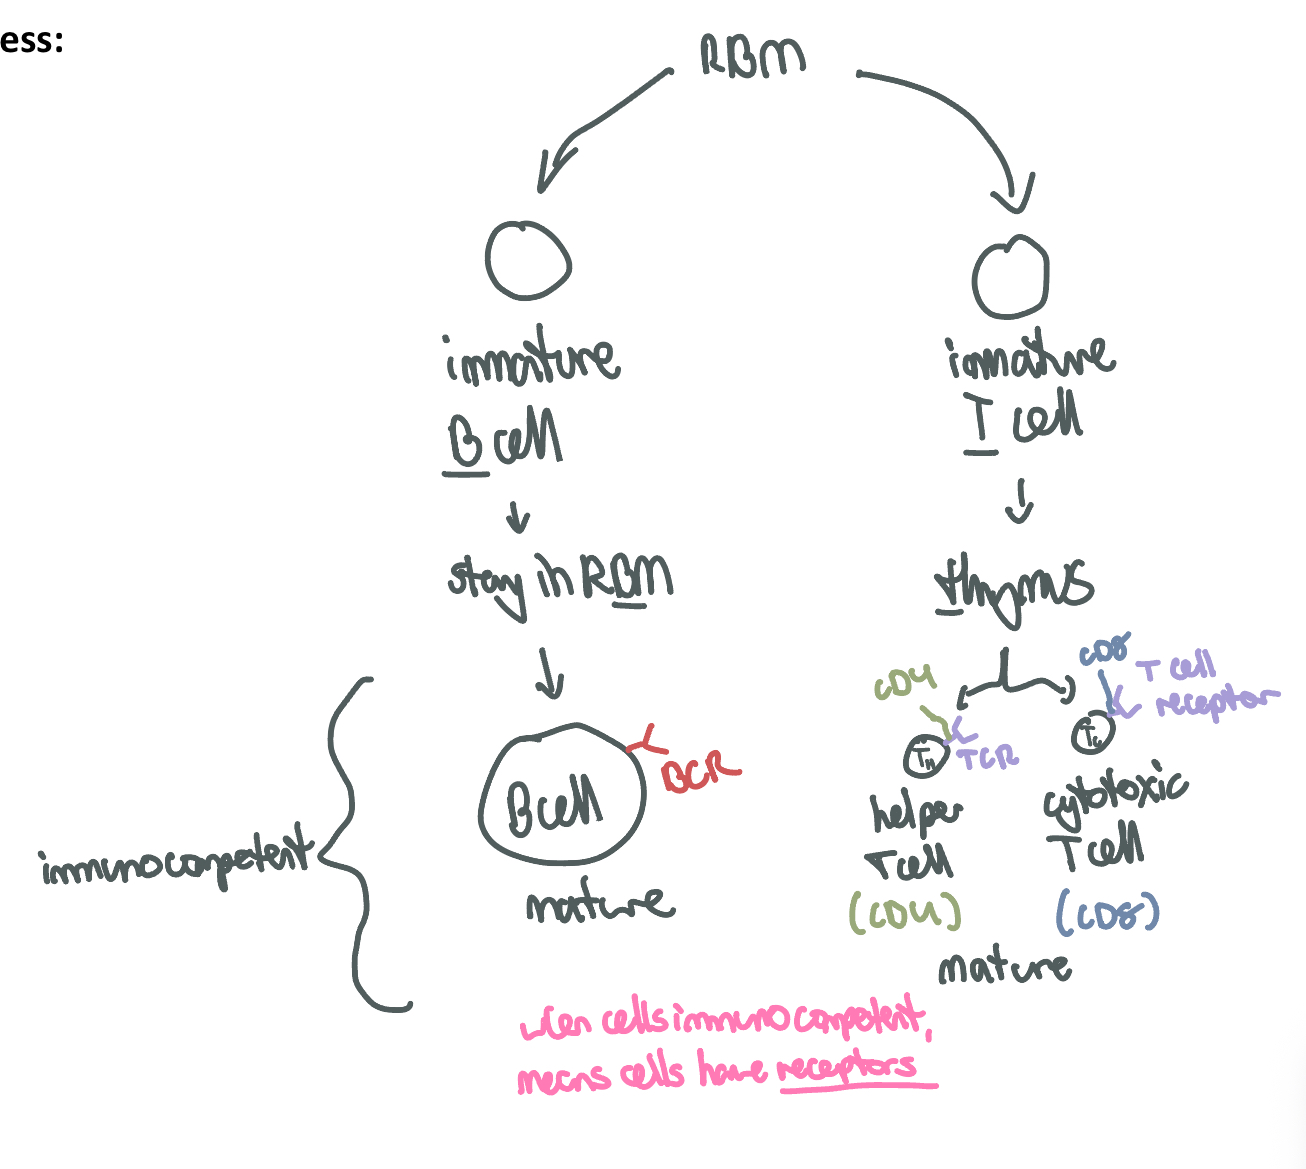 ess:
RBM
immature
B cell
stay in RBM
immature
T cell
thymus
CD4
CD8
T cell
receptor
TH
TCR
Tc
helper
T cell
(CD4)
cytotoxic
T cell
(CD8)
mature
B cell
BCR
mature
immunocompetent
when cells immunocompetent,
means cells have receptors